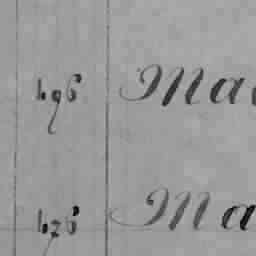 496 Ma
426 Ma